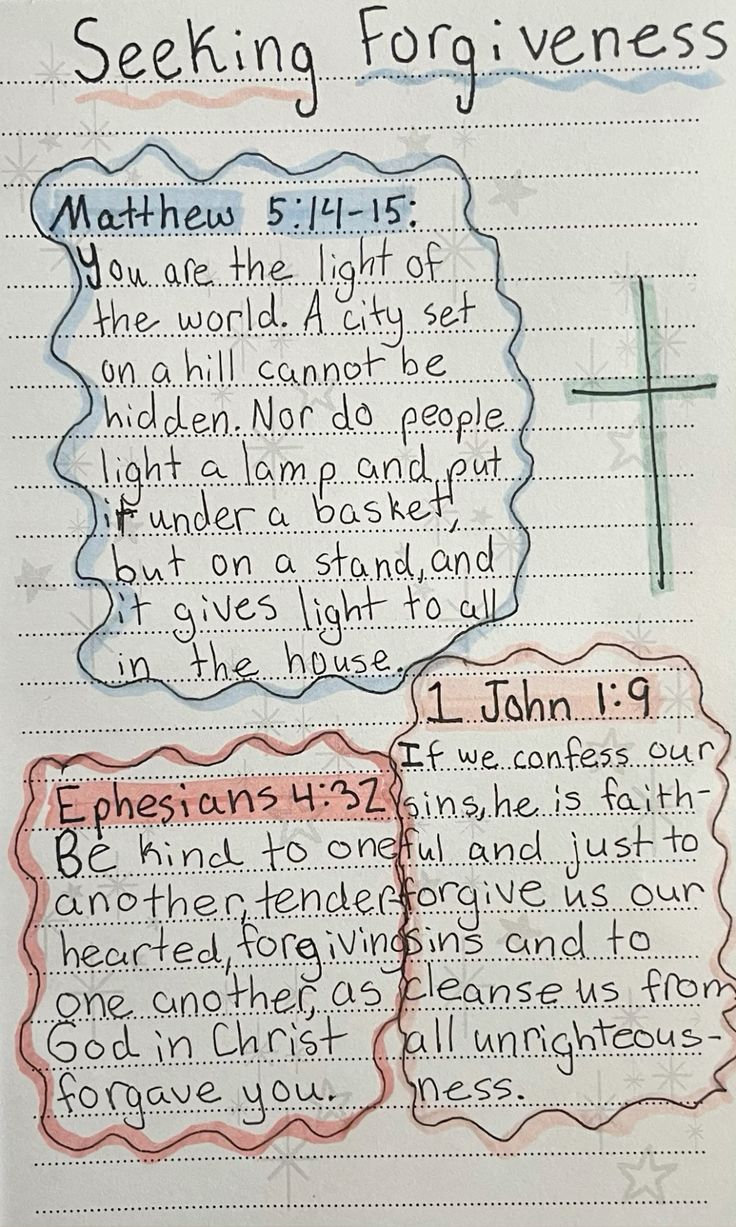 Seeking Forgiveness
Matthew 5:14-15:
You are the light of
the world. A city set
on a hill cannot be
hidden. Nor do people
light a lamp and put
it under a basket,
but on a stand, and
it gives light to all
in the house.
1 John 1:9
If we confess our
sins, he is faith-
ful and just to
forgive us our
sins and to
cleanse us from
all unrighteous-
ness.
Ephesians 4:32
Be kind to one
another, tender-
hearted, forgiving
one another, as
God in Christ
forgave you.